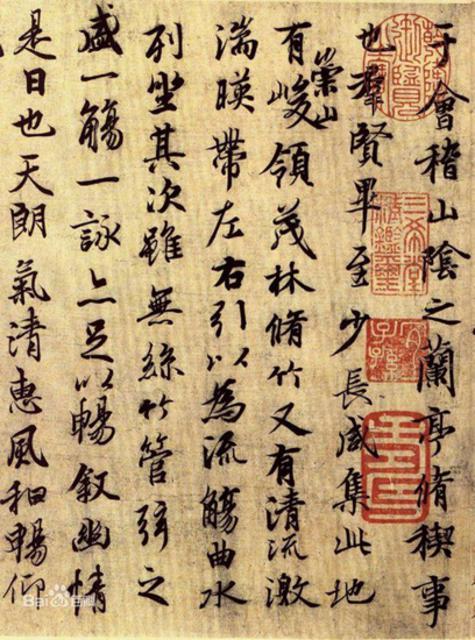 于會稽山陰之蘭亭脩稧事
也羣賢畢至少長咸集此地
有崇山峻領茂林脩竹又有清流激
湍暎帶左右引以為流觴曲水
列坐其次雖無絲竹管弦之
盛一觴一詠亦足以暢叙幽情
是日也天朗氣清惠風和暢仰
三希堂精鑑璽
宜子孫
Bai百科